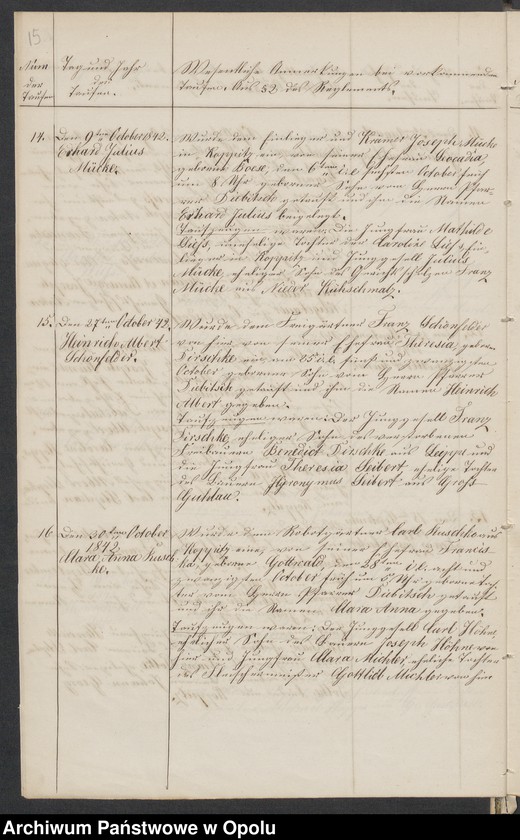 15
Num
der
Taufen
Tag und Jahr
der
Taufen.
Wesentliche Anmerkungen bei vorkommenden
Taufen. Aus §2 des Reglements.
14.
Den 9ten October 1842.
Erhard Julius
Mücke.
Wurde dem Einlieger und Krämer Joseph Mücke
in Koppitz ein von seiner Ehefrau Leocadia,
geborene Boese, den 6ten die sechsten October früh
um 8 Uhr geborner Sohn vom Herrn Pfar-
rer Diebitsch getauft und ihm die Namen
Erhard Julius beigelegt.
Taufzeugen waren: Die Jungfrau Mathilde
uneheliche Tochter der Caroline
in Koppitz und Junggesell Julius
Mücke, ehelicher Sohn des Gerichtscholzen Franz
Mücke aus Nieder Kühschmalz.
15.
Den 27ten October 42.
Heinrich Albert
Schönfelder.
Wurde dem Freigärtner Franz Schönfelder
von hier von seiner Ehefrau Theresia, gebor.
Pirschke ein am 25 d. fünf und zwanzigsten
October geborner Sohn vom Herrn Pfarrer
Diebitsch getauft und ihm die Namen Heinrich
Albert gegeben.
Taufzeugen waren: Der Junggesell Franz
Pirschke, ehelicher Sohn des verstorbenen
Benedict Pirschke aus und
die Jungfrau Theresia Seibert, eheliche Tochter
des Bauern Hyeronymus Seibert aus Groß-
Guhlau.
16
Den 30ten October
1842
Maria Anna Kusch-
ke.
Wurde dem Robotgärtner Carl Kuschke aus
Koppitz eine, von seiner Ehefrau Francis-
ka, geborne Gottwald, den 28ten d. acht und
zwanzigsten October früh um Uhr geborne Toch-
ter vom Herrn Pfarrer Diebitsch getauft
und ihr die Namen Maria Anna gegeben.
Taufzeugen waren: Der Junggesell Carl Höhne,
ehelicher Sohn des Bauern Joseph Höhne von
hier und Jungfrau Maria Michler, eheliche Tochter
des Fleischermeister Gottlieb Michler von hier
Archiwum Państwowe w Opolu